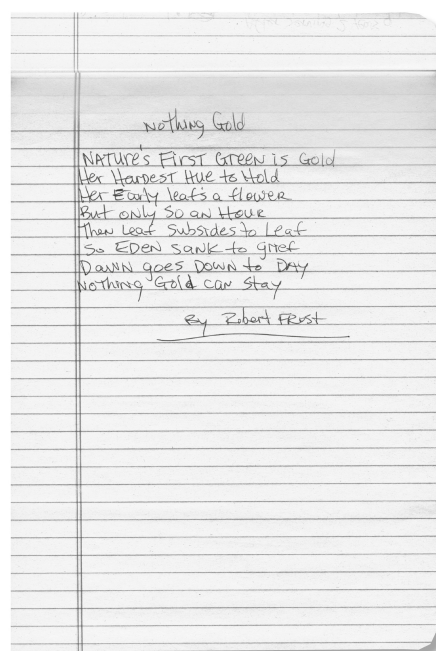 Nothing Gold
NATURE's FIRST GREEN is Gold
Her HARDEST HUE to Hold
Her Early leaf's a flower
But only SO an HOUR
Then Leaf Subsides to Leaf
So EDEN SANK to grief
DAWN goes DOWN to DAY
Nothing Gold can Stay
By Robert FROST